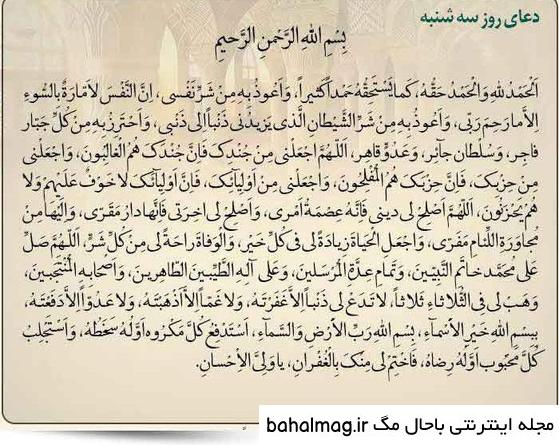 دعای روز سه شنبه
بِسْمِ اللهِ الرَّحْمنِ الرَّحیمِ
اَلْحَمْدُ لِلّهِ وَالْحَمْدُ حَقُّهُ، کَما یَسْتَحِقُّهُ حَمْداً کَثیراً، وَاَعُوذُ بِهِ مِنْ شَرِّ نَفْسی، اِنَّ النَّفْسَ لَاَمّارَةٌ بِالسُّوءِ
اِلاَّ ما رَحِمَ رَبّی، وَاَعُوذُ بِهِ مِنْ شَرِّ الشَّیْطانِ الَّذی یَزیدُنی ذَنْباً اِلی ذَنْبی، وَاَحْتَرِزُ بِهِ مِنْ کُلِّ جَبّارٍ
فاجِرٍ، وَسُلْطانٍ جآئِرٍ، وَعَدُوٍّ قاهِرٍ، اَللّهُمَّ اجْعَلْنی مِنْ جُنْدِکَ فَاِنَّ جُنْدَکَ هُمُ الْغالِبُونَ، وَاجْعَلْنی
مِنْ حِزْبِکَ، فَاِنَّ حِزْبَکَ هُمُ الْمُفْلِحُونَ، وَاجْعَلْنی مِنْ اَوْلِیآئِکَ، فَاِنَّ اَوْلِیآئَکَ لاخَوْفٌ عَلَیْهِمْ وَلا
هُمْ یَحْزَنُونَ، اَللّهُمَّ اَصْلِحْ لی دینی فَاِنَّهُ عِصْمَةُ اَمْری، وَاَصْلِحْ لی اخِرَتی فَاِنَّها دارُ مَقَرّی، وَاِلَیْها مِنْ
مُجاوَرَةِ اللِّئامِ مَفَرّی، وَاجْعَلِ الْحَیاةَ زِیادَةً لی فی کُلِّ خَیْرٍ، وَالْوَفاةَ راحَةً لی مِنْ کُلِّ شَرٍّ، اَللّهُمَّ صَلِّ
عَلی مُحَمَّدٍ خاتَمِ النَّبِیّینَ، وَتَمامِ عِدَّةِ الْمُرْسَلینَ، وَعَلی آلِهِ الطَّیِّبینَ الطّاهِرینَ، وَاَصْحابِهِ الْمُنْتَجَبینَ،
وَهَبْ لی فِی الثُّلاثاءِ ثَلاثاً، لا تَدَعْ لی ذَنْباً اِلاَّ غَفَرْتَهُ، وَلا غَمّاً اِلاَّ اَذْهَبْتَهُ، وَلا عَدُوّاً اِلاَّ دَفَعْتَهُ،
بِبِسْمِ اللهِ خَیْرِ الْاَسْمآءِ، بِسْمِ اللهِ رَبِّ الْاَرْضِ وَالسَّمآءِ، اَسْتَدْفِعُ کُلَّ مَکْرُوهٍ اَوَّلُهُ سَخَطُهُ، وَاَسْتَجْلِبُ
کُلَّ مَحْبُوبٍ اَوَّلُهُ رِضاهُ، فَاخْتِمْ لی مِنْکَ بِالْغُفْرانِ، یا وَلِیَّ الْاِحْسانِ.
مجله اینترنتی باحال مگ bahalmag.ir